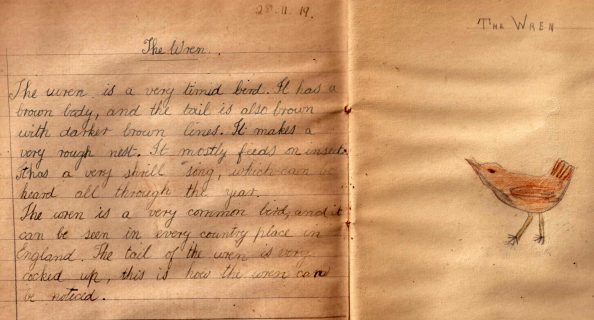 28.11.19.
The Wren.
The wren is a very timid bird. It has a
brown body, and the tail is also brown
with darker brown lines. It makes a
very rough nest. It mostly feeds on insects
It has a very shrill song, which can be
heard all through the year.
The wren is a very common bird, and it
can be seen in every country place in
England. The tail of the wren is very
cocked up, this is how the wren can
be noticed.
THE WREN